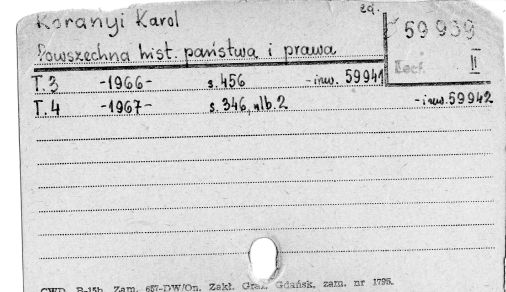 Koranyi Karol
59 939
Powszechna hist. państwa i prawa
II
T.3 -1966- s.456 -inw. 59941
T.4 -1967- s.346, nlb.2 -inw.59942
CWD B-15h Zam. 657-DW/On. Zakł. Graf. Gdańsk, zam. nr 1795.